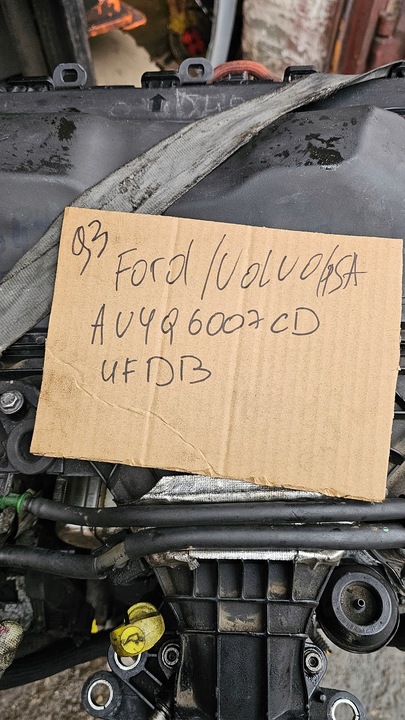 93
Ford/VOLVO/PSA
AV4Q6007CD
UFDB